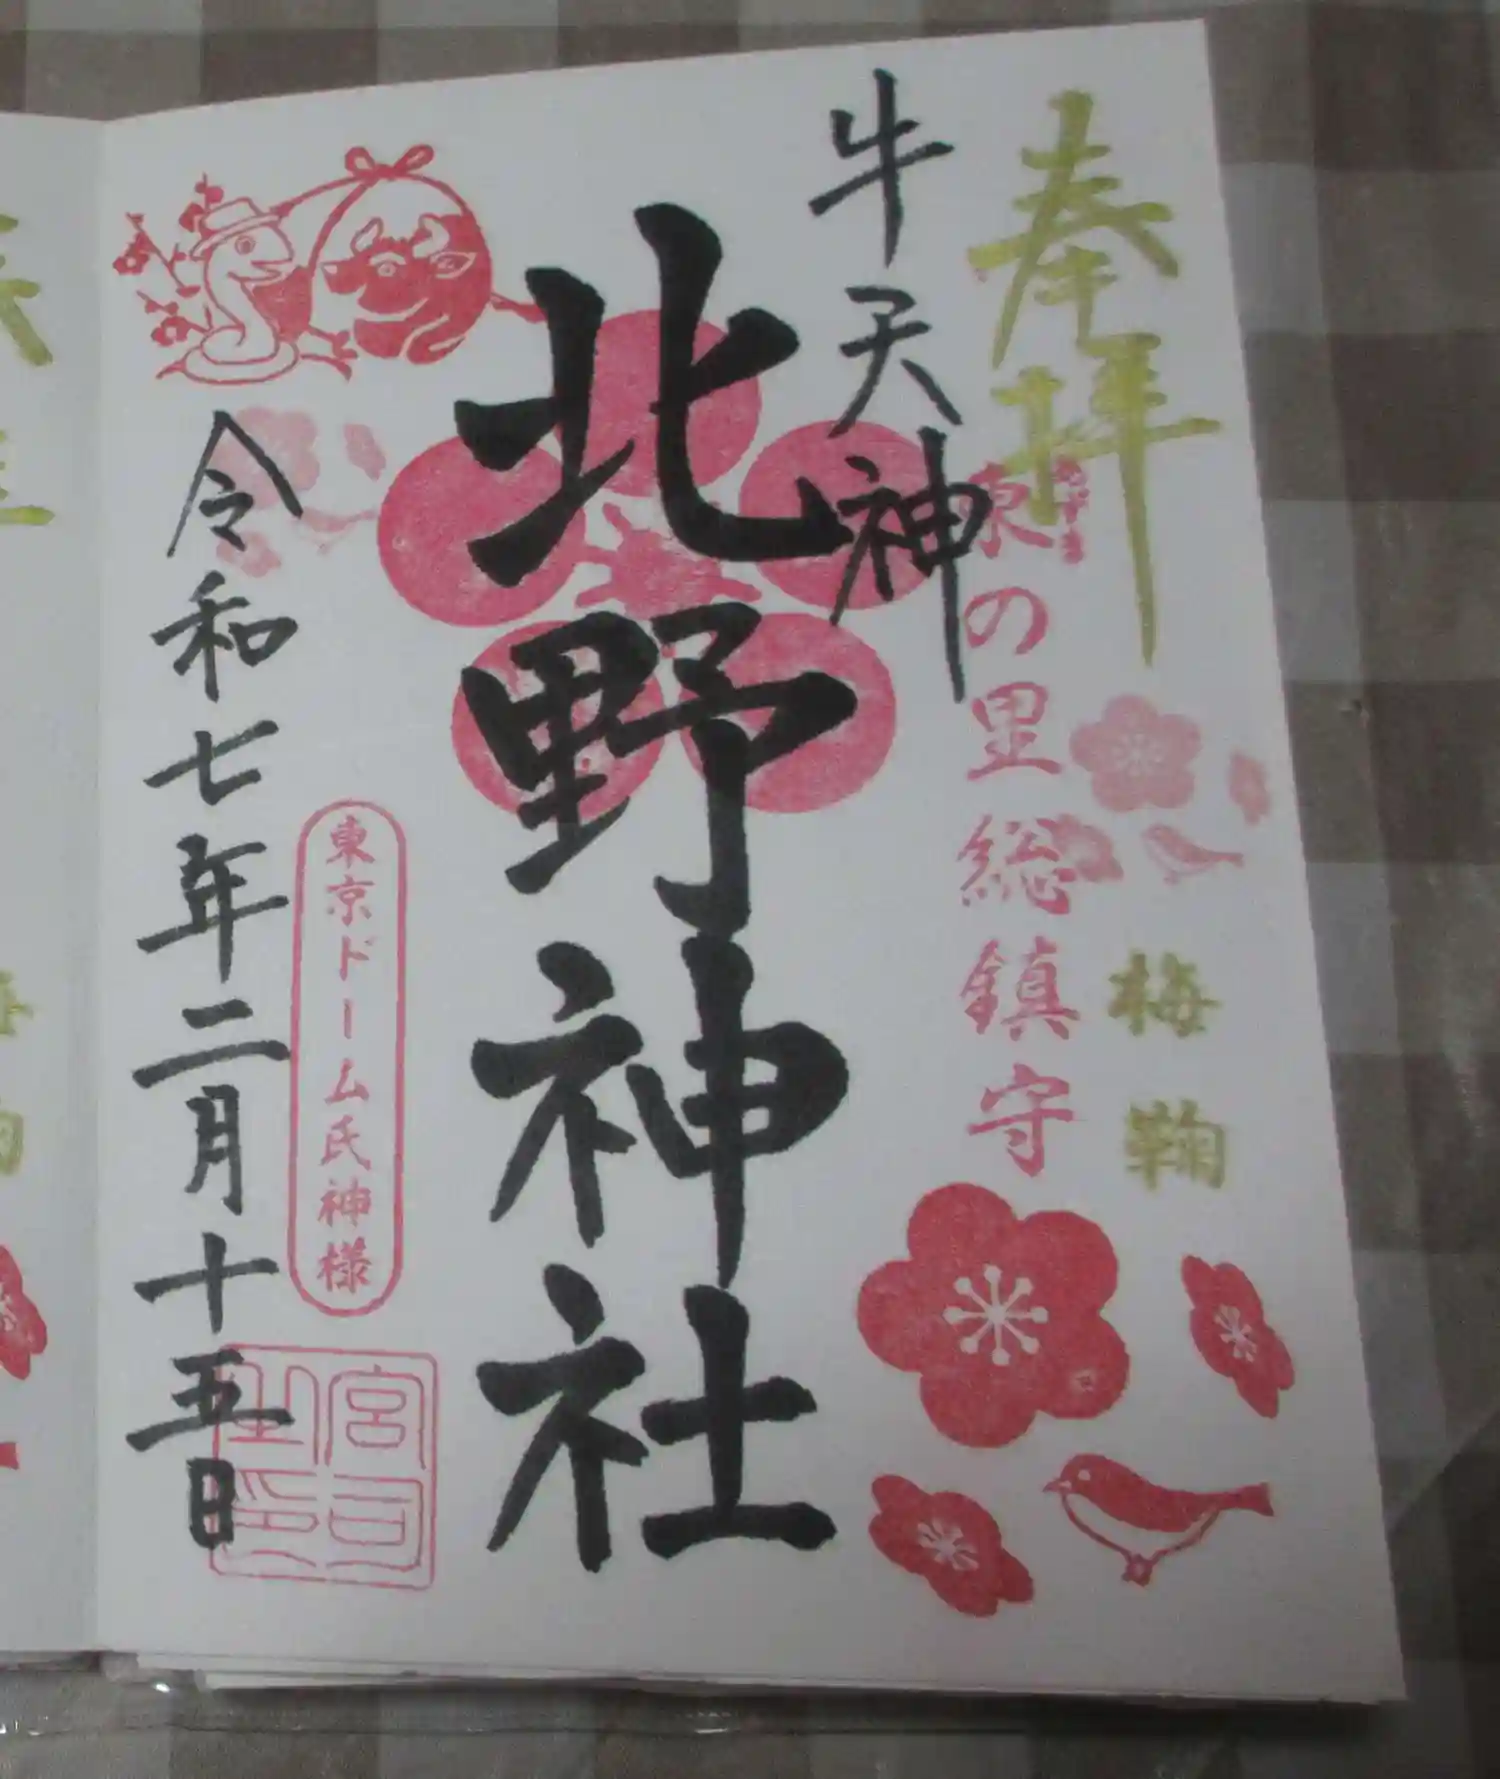 奉拝
梅鞠
東の里総鎮守
牛天神
北野神社
東京ドーム氏神様
令和七年二月十五日